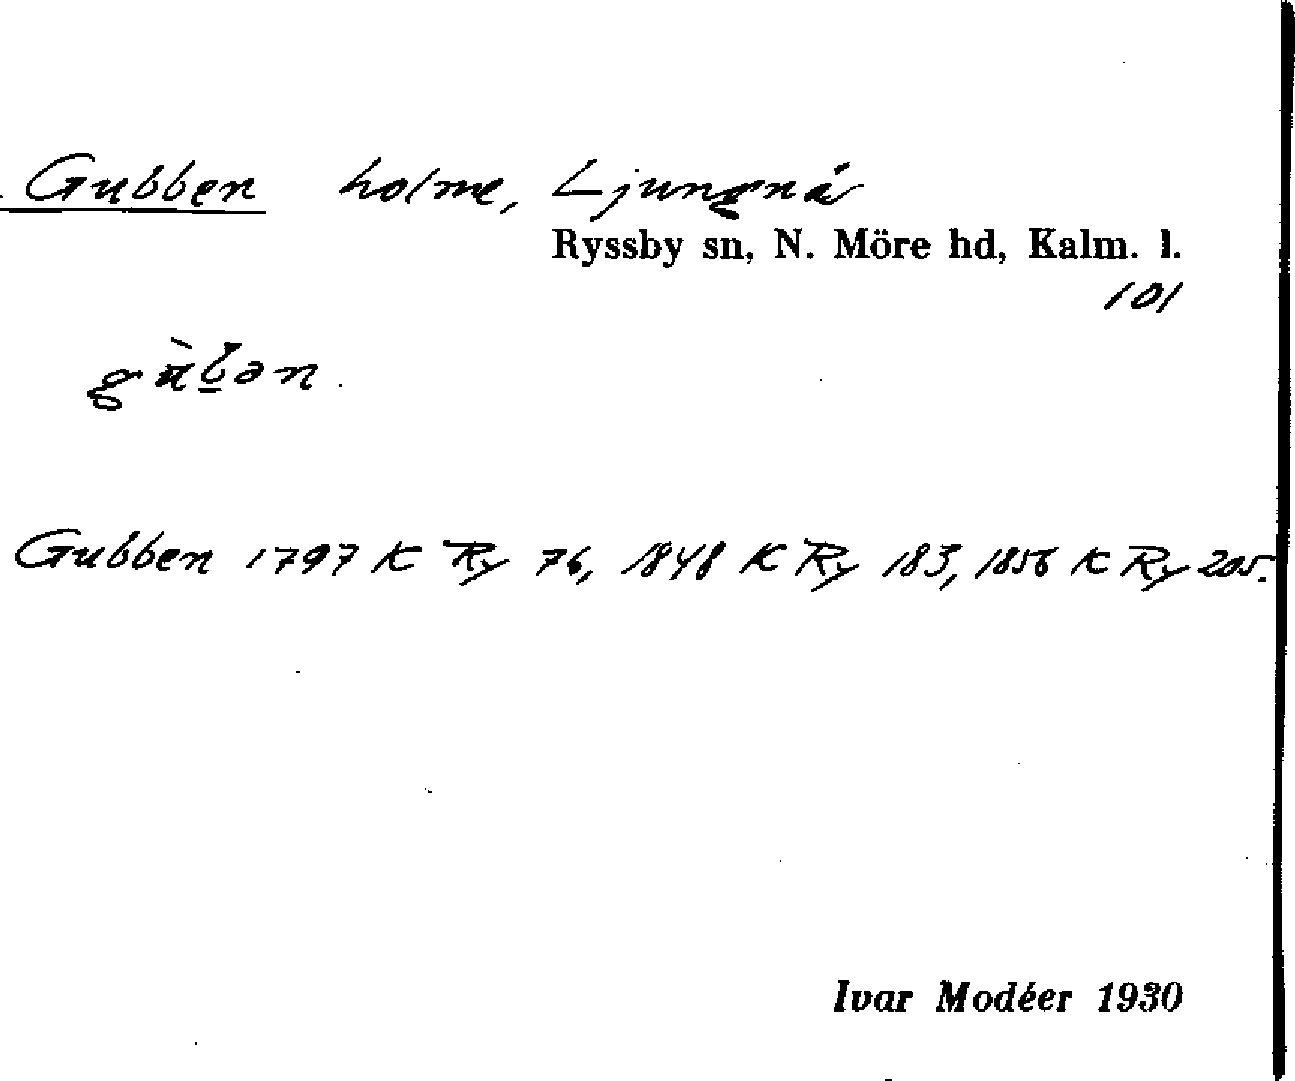 Gubben holme, Ljungnä
Ryssby sn, N. Möre hd, Kalm. l.
101
gùb̲ən.
Gubben 1797 K Ry 76, 1848 K Ry 183, 1856 K Ry 205.
Ivar Modéer 1930